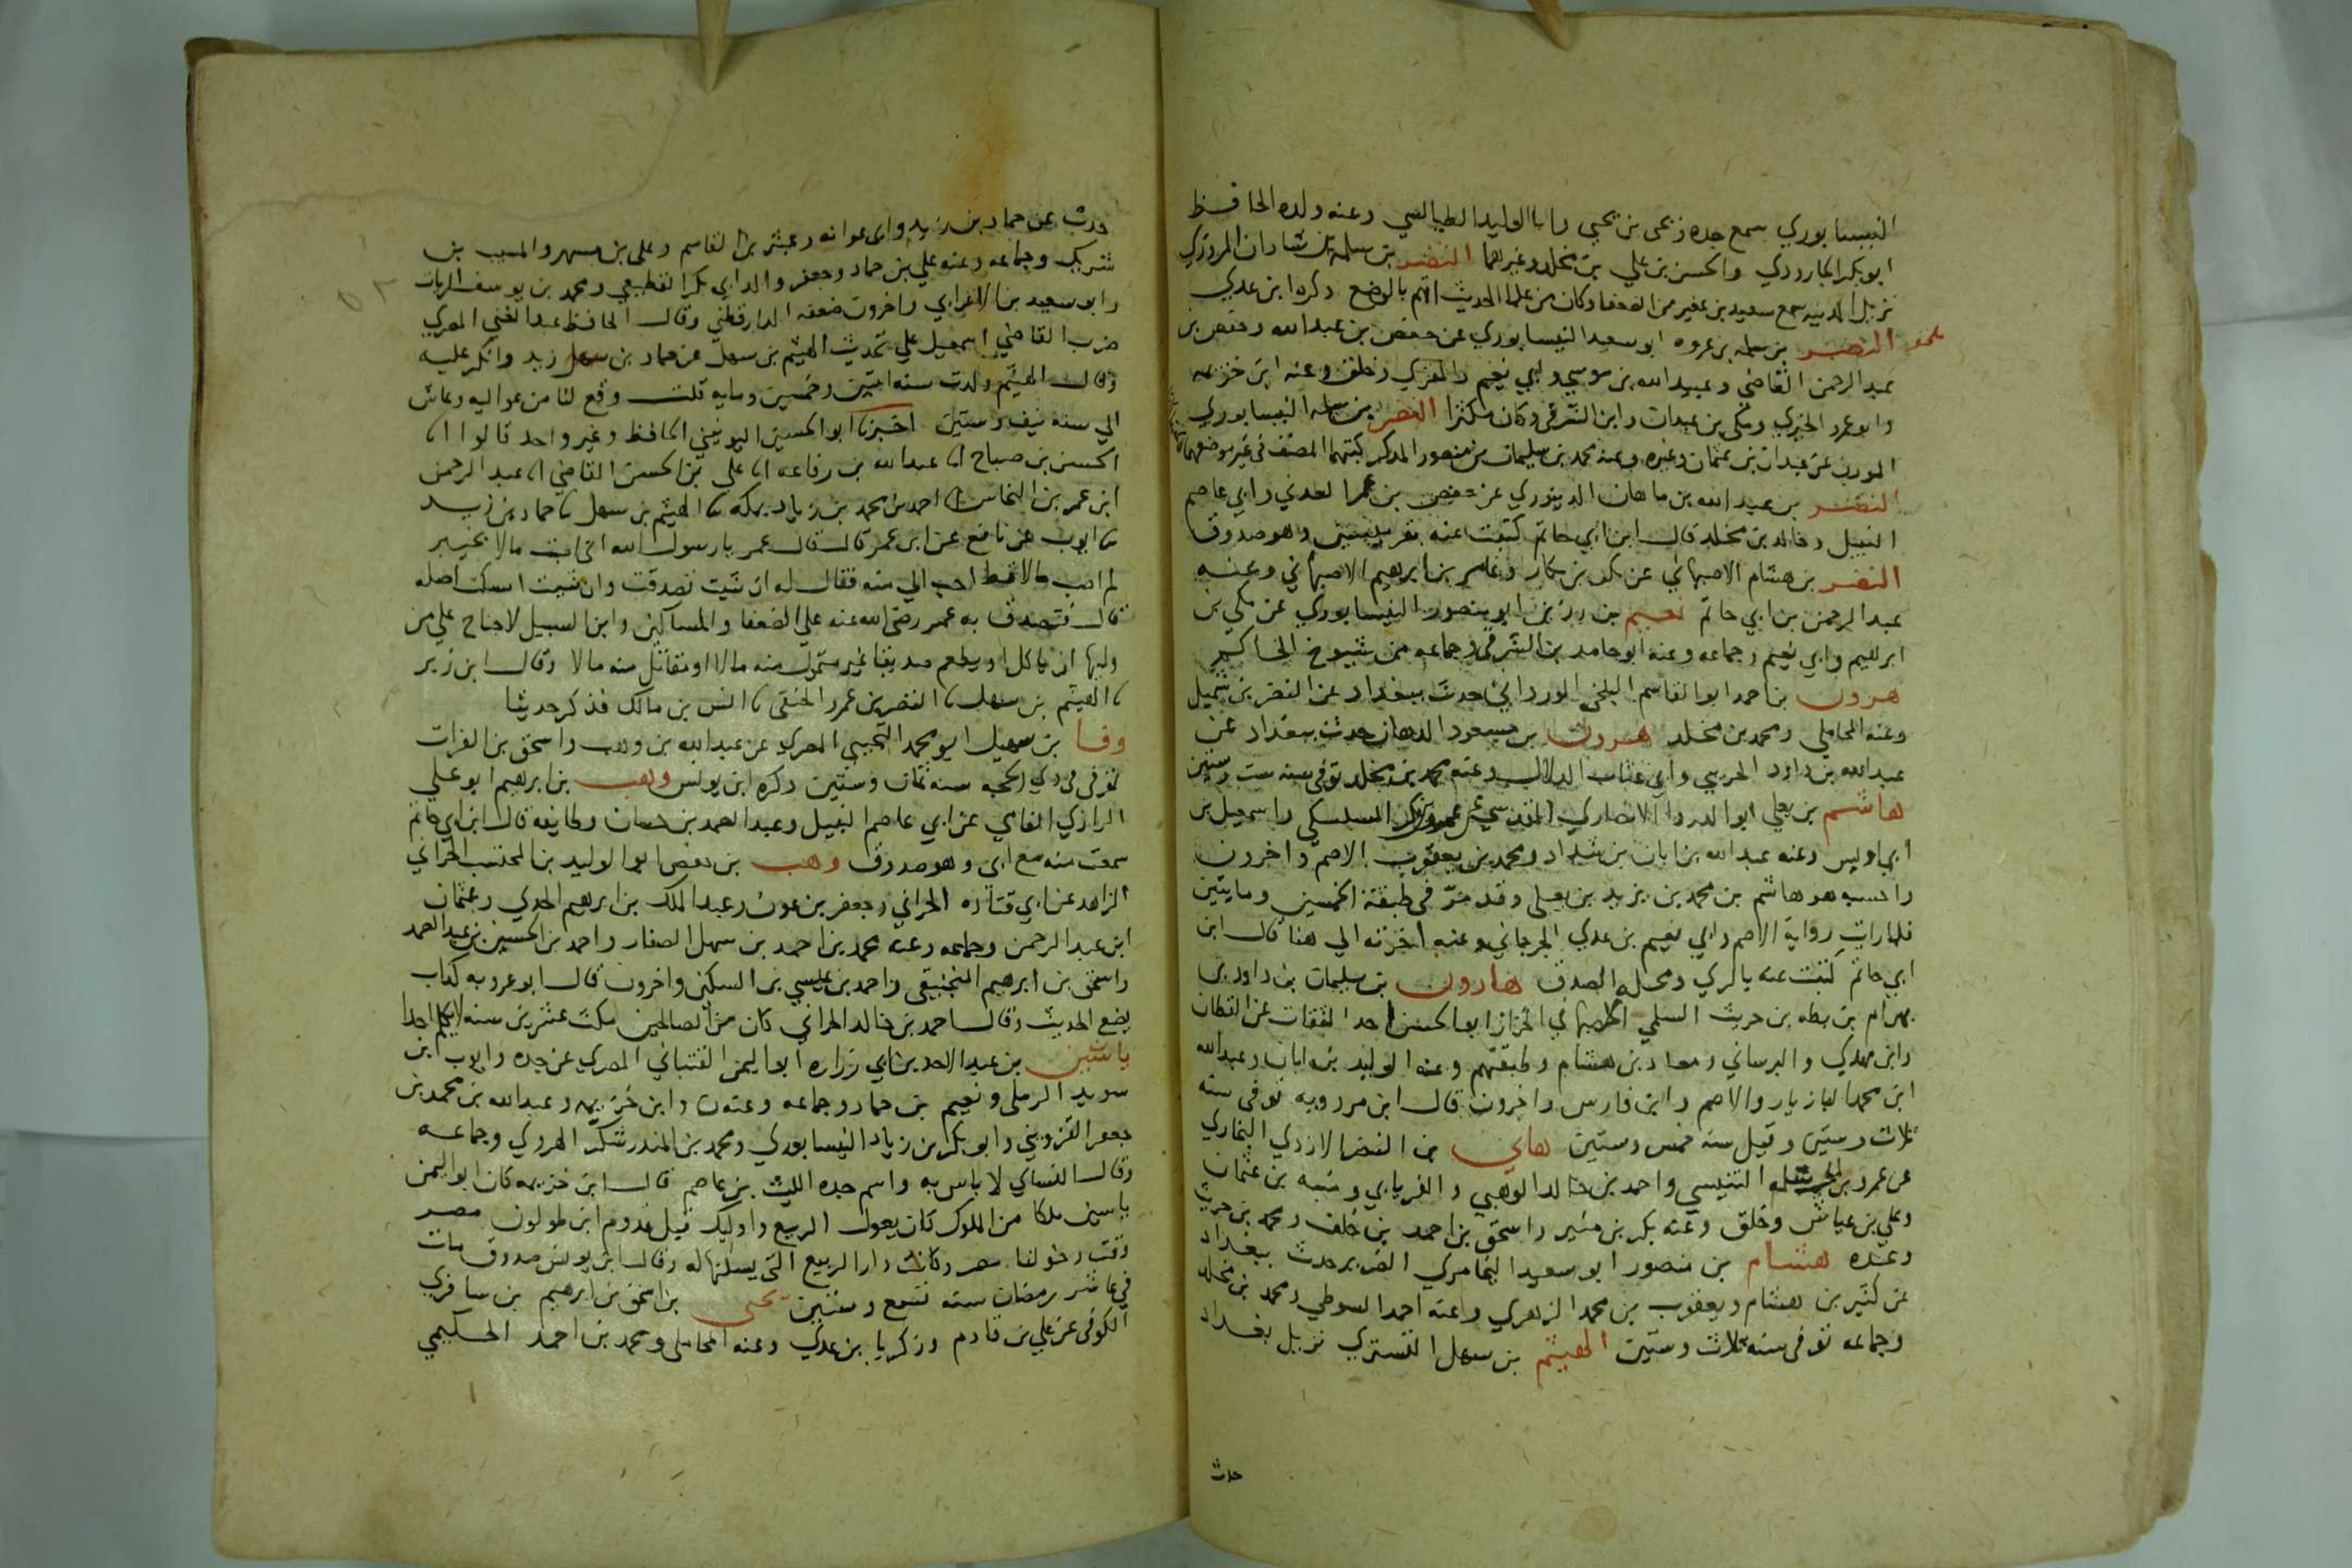 النيسابوري سمع جده زنحى بن يحيى وابا الوليد الطيالسي وعنه ولده الحافظ
ابو بكر الجارودي والحسن بن علي بن مخلد وغيرهما النضر بن سلمة بن شاذان المروزي
نزيل المدينة سمع سعيد بن عفير من الضعفا وكان من علما الحديث اتهم بالوضع ذكره ابن عدي
النضر بن سلمه بن عروه ابو سعيد النيسابوري عن حفص بن عبد الله وحفص بن
عبد الرحمن القاضي وعبيد الله بن موسى وابي نعيم والمقري وخلق وعنه ابن خزيمه
وابو عمرو الحيري ومكي بن عبدان وابن الشرقي وكان مكثرا النضر بن سلمه النيسابوري
المودب عن عبدان بن عثمان وغيره وعنه محمد بن سليمان بن منصور المذكر كتبهما المصنف في غير موضعهما
النضر بن عبد الله بن ماهان الدينوري عن حفص بن عمر العدني وابي عاصم
النبيل وخالد بن مخلد قال ابن ابي حاتم كتبت عنه وهو صدوق
النضر بن هشام الاصبهاني عن بكر بن بكار وعامر بن ابرهيم الاصبهاني وعنه
عبد الرحمن بن ابي حاتم نعيم بن رزين ابو منصور النيسابوري عن مكي بن
ابرهيم وابي نعيم وجماعه وعنه ابو حامد بن الشرقي وجماعه من شيوخ الحاكم
هرون بن احمد ابو القاسم البلخي الورداني حدث ببغداد عن النضر بن شميل
وعنه المحاملي ومحمد بن مخلد هرون بن مسعود الدهان حدث ببغداد عن
عبد الله بن داود الخريبي وابي عتاب الدلال وعنه محمد بن مخلد توفي سنه ست وستين
هاشم بن يعلى ابو الدردا الانصاري المقدسي عن عمرو بن بكر السكسكي واسمعيل بن
ابي اويس وعنه عبد الله بن ابان بن شداد ومحمد بن يعقوب الاصم واخرون
واحسبه هو هاشم بن محمد بن يزيد بن يعلى وقد مر في طبقة الخمسين ومايتين
فلما رايت رواية الاصم وابي نعيم بن عدي الجرجاني عنه اخرته الى هنا قال ابن
ابي حاتم كتبت عنه بالري ومحله الصدق هارون بن سليمان بن داود بن
بهرام بن بطه بن حريث السلمي الاصبهاني الخزاز ابو الحسن احد الثقات عن القطان
وابن مهدي والبرساني ومعاذ بن هشام وطبقتهم وعنه الوليد بن ابان وعبد الله
ابن محمد البازيار والاصم وابن فارس واخرون قال ابن مردويه توفي سنه
ثلاث وستين وقيل سنه خمس وستين هاني بن النضر الازدي البخاري
عن عمرو بن التنيسي واحمد بن خالد الوهبي والفريابي وشبه بن عثمان
وعلي بن عياش وخلق وعنه بكر بن منير واسحق بن احمد بن خلف ومحمد بن حريث
وعده هشام بن منصور ابو سعيد اليخامري الضرير حدث ببغداد
عن كثير بن هشام ويعقوب بن محمد الزهري وعنه احمد السوطي ومحمد بن مخلد
وجماعه توفي سنه ثلاث وستين الهيثم بن سهل التستري نزيل بغداد
حدث
حدث عن حماد بن زيد وابي عوانه وعبثر بن القاسم وعلي بن مسهر والمسيب بن
شريك وجماعه وعنه علي بن حماد وجعفر والد ابي بكر القطيعي ومحمد بن يوسف الزيات
وابو سعيد بن الاعرابي واخرون ضعفه الدارقطني وقال الحافظ عبد الغني المصري
ضرب القاضي اسمعيل على تحديث الهيثم بن سهل عن حماد بن زيد وانكر عليه
وقال الهيثم ولدت سنه اثنتين وخمسين ومايه قلت وقع لنا من عواليه وعاش
الى سنه نيف وستين اخبرنا ابو الحسين اليونيني الحافظ وغير واحد قالوا انا
الحسن بن صباح انا عبد الله بن رفاعه انا علي بن الحسن القاضي انا عبد الرحمن
ابن عمر بن النحاس انا احمد بن محمد بن زياد بمكه نا الهيثم بن سهل نا حماد بن زيد
نا ايوب عن نافع عن ابن عمر قال قال عمر يا رسول الله اني اصبت مالا بخيبر
لم اصب مالا قط احب الي منه فقال له ان شيت تصدقت وان شيت امسكت اصله
قال فتصدق به عمر رضي الله عنه على الضعفا والمساكين وابن السبيل لا جناح على من
وليها ان ياكل او يطعم صديقا غير متمول منه مالا او متاثل منه مالا وقال ابن زبر
نا الهيثم بن سهل نا النضر بن عمرو الحنفي نا انس بن مالك فذكر حديثا
وفا بن سهيل ابو محمد التجيبي المصري عن عبد الله بن وهب واسحق بن الفرات
توفي في ذي الحجه سنه ثمان وستين ذكره ابن يونس وهب بن ابرهيم ابو علي
الرازي الفامي عن ابي عاصم النبيل وعبد الصمد بن حسان وطايفه قال ابن ابي حاتم
سمعت منه مع ابي وهو صدوق وهب بن حفص ابو الوليد بن المحتسب الحراني
الزاهد عن ابي قتاده الحراني وجعفر بن عون وعبد الملك بن ابرهيم الجدي وعثمان
ابن عبد الرحمن وجماعه وعنه محمد بن احمد بن سهل الصفار واحمد بن الحسين بن عبد الصمد
واسحق بن ابرهيم المنجنيقي واحمد بن عيسى بن السكن واخرون قال ابو عروبه كذاب
يضع الحديث وقال احمد بن خالد الحراني كان من الصالحين مكث عشرين سنه لا يكلم احدا
ياسين بن عبد الاحد بن ابي زراره ابو اليمن القتباني المصري عن جده وايوب ابن
سويد الرملي ونعيم بن حماد وجماعه وعنه ن وابن خزيمه وعبد الله بن محمد بن
جعفر القزويني وابو بكر بن زياد النيسابوري ومحمد بن المنذر شكر الهروي وجماعه
وقال النساي لا باس به واسم جده الليث بن عاصم قال ابن خزيمه كان ابو اليمن
ياسين ملكا من الملوك كان يعول الربيع واوليك قبل قدوم ابن طولون مصر
وقت دخولنا مصر وكانت دار الربيع التي يسكنها له وقال ابن يونس صدوق مات
في عاشر رمضان سنه تسع وستين يحيى بن اسحق بن ابرهيم بن سافري
الكوفي عن علي بن قادم وزكريا بن عدي وعنه المحاملي ومحمد بن احمد الحكيمي